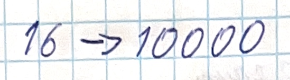 16 → 10000